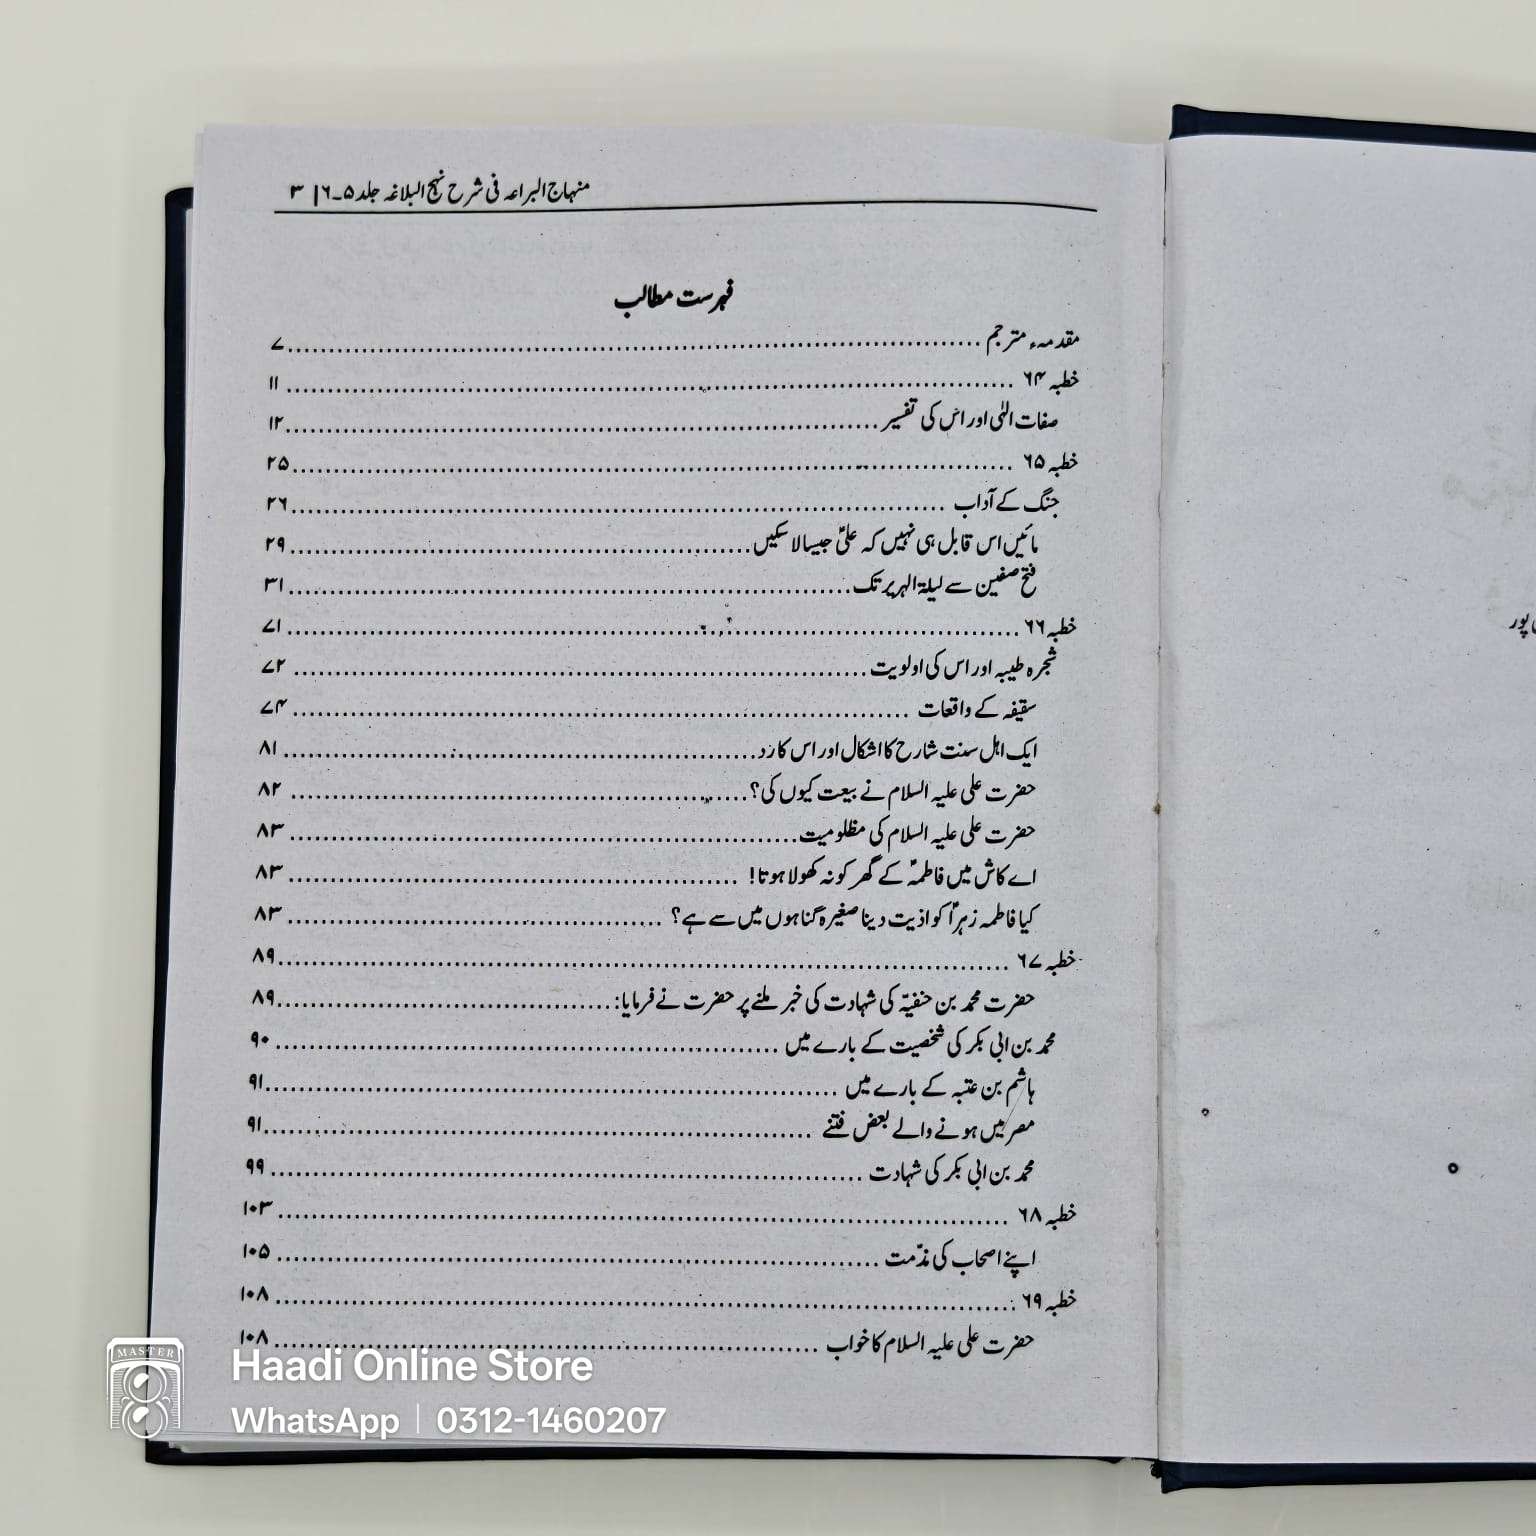 منہاج البراعہ فی شرح نہج البلاغہ جلد ۵۔۶ | ۳
فہرست مطالب
مقدمہء مترجم ........ ۷
خطبہ ۶۴ ........ ۱۱
صفات الٰہی اور اس کی تفسیر ........ ۱۲
خطبہ ۶۵ ........ ۲۵
جنگ کے آداب ........ ۲۶
مائیں اس قابل ہی نہیں کہ علیؑ جیسا لا سکیں ........ ۲۹
فتح صفین سے لیلۃ الہریر تک ........ ۳۱
خطبہ ۶۶ ........ ۷۱
شجرہ طیبہ اور اس کی اولویت ........ ۷۲
سقیفہ کے واقعات ........ ۷۴
ایک اہل سنت شارح کا اشکال اور اس کا رد ........ ۸۱
حضرت علی علیہ السلام نے بیعت کیوں کی؟ ........ ۸۲
حضرت علی علیہ السلام کی مظلومیت ........ ۸۳
اے کاش میں فاطمہؑ کے گھر کو نہ کھولا ہوتا! ........ ۸۳
کیا فاطمہ زہراؑ کو اذیت دینا صغیرہ گناہوں میں سے ہے؟ ........ ۸۳
خطبہ ۶۷ ........ ۸۹
حضرت محمد بن حنفیہؒ کی شہادت کی خبر ملنے پر حضرت نے فرمایا: ........ ۸۹
محمد بن ابی بکر کی شخصیت کے بارے میں ........ ۹۰
ہاشم بن عتبہ کے بارے میں ........ ۹۱
مصر میں ہونے والے بعض فتنے ........ ۹۱
محمد بن ابی بکر کی شہادت ........ ۹۹
خطبہ ۶۸ ........ ۱۰۳
اپنے اصحاب کی مذّمت ........ ۱۰۵
خطبہ ۶۹ ........ ۱۰۸
حضرت علی علیہ السلام کا خواب ........ ۱۰۸
MASTER
Haadi Online Store
WhatsApp | 0312-1460207